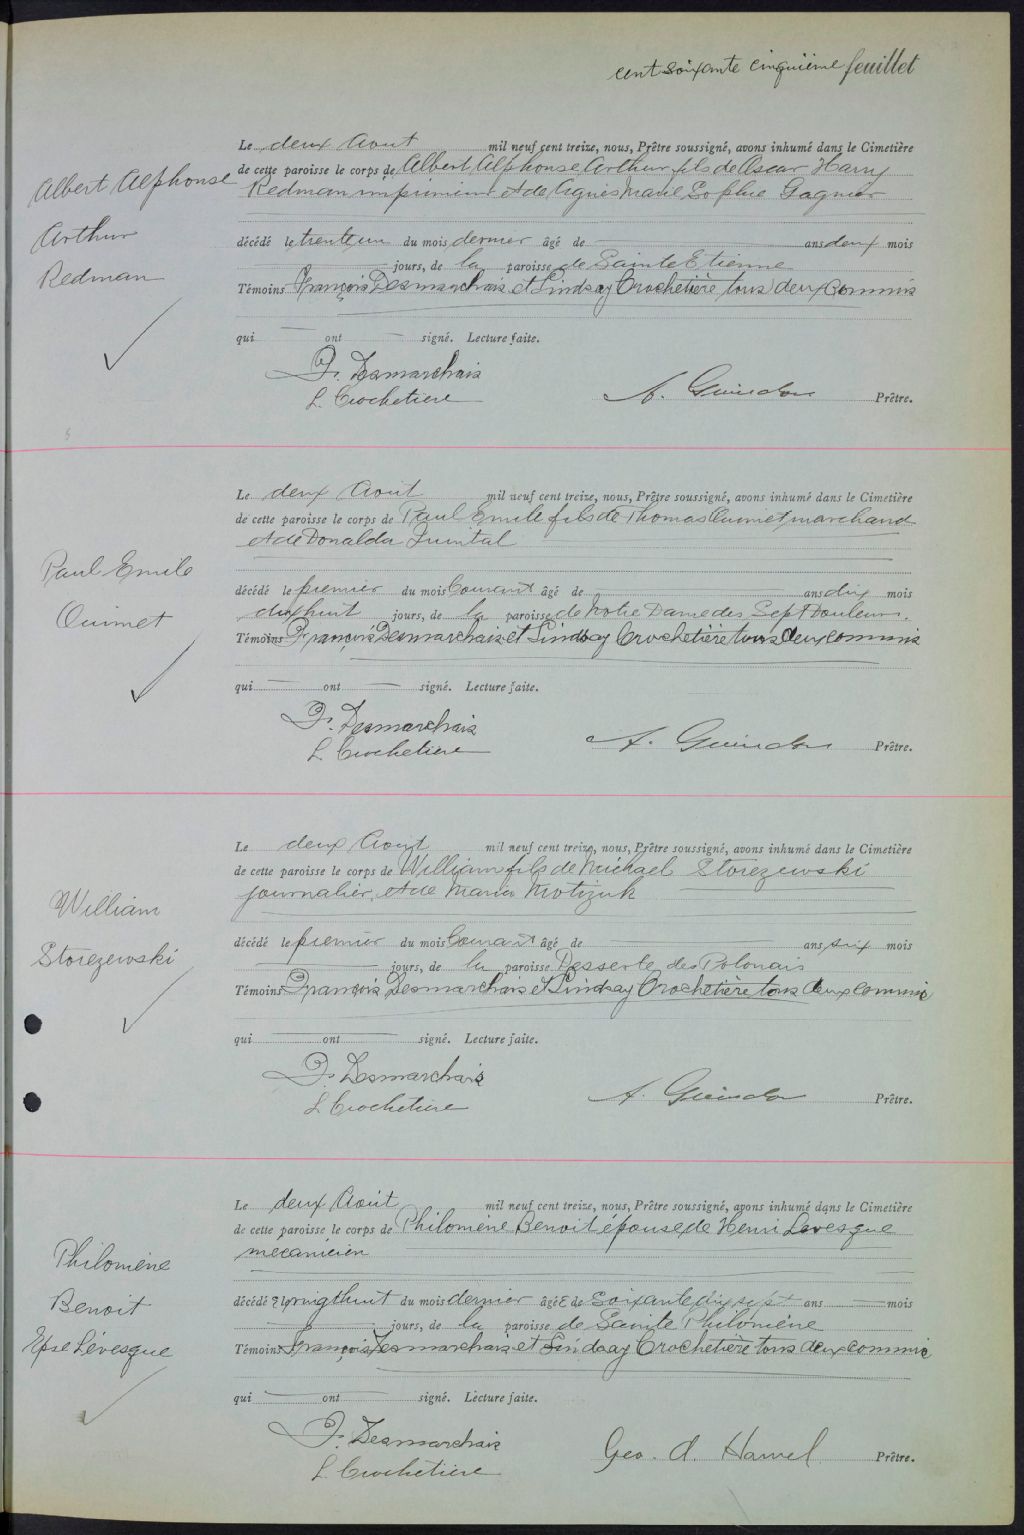 cent soixante cinquième feuillet
Le deux Aout mil neuf cent treize, nous, Prêtre soussigné, avons inhumé dans le Cimetière
Albert Alphonse
de cette paroisse le corps de Albert Alphonse Arthur fils de Oscar Harry
Redman imprimeur et de Agnes Marie Sophie Gagnier
Arthur
décédé le trente un du mois dernier âgé de ans deux mois
Redman
jours, de la paroisse de Sainte Etienne
Témoins François Desmarchais et Lindsay Crochetière tous deux commis
qui ont signé. Lecture faite.
F. Desmarchais
L. Crochetiere
A. Guindon Prêtre.
Le deux Aout mil neuf cent treize, nous, Prêtre soussigné, avons inhumé dans le Cimetière
de cette paroisse le corps de Paul Emile fils de Thomas Ouimet marchand
et de Donalda Quintal
Paul Emile
décédé le premier du mois Courant âgé de ans dix mois
Ouimet
dix huit jours, de la paroisse de Notre Dame des Sept Douleurs.
Témoins François Desmarchais et Lindsay Crochetière tous deux commis
qui ont signé. Lecture faite.
F. Desmarchais
L. Crochetiere
A. Guindon Prêtre.
Le deux Aout mil neuf cent treize, nous, Prêtre soussigné, avons inhumé dans le Cimetière
de cette paroisse le corps de William fils de Michael Storezewski
journalier, et de Maria Motizuk
William
décédé le premier du mois Courant âgé de ans six mois
Storezewski
jours, de la paroisse Desserte des Polonais
Témoins François Desmarchais et Lindsay Crochetière tous deux commis
qui ont signé. Lecture faite.
F. Desmarchais
L. Crochetiere
A. Guindon Prêtre.
Le deux Août mil neuf cent treize, nous, Prêtre soussigné, avons inhumé dans le Cimetière
de cette paroisse le corps de Philomène Benoit épouse de Henri Levesque
mecanicien
Philomène
Benoit
décédée le vingt huit du mois dernier âgée de soixante dix sept ans mois
jours, de la paroisse de Sainte Philomène
Epse Lévesque
Témoins François Desmarchais et Lindsay Crochetière tous deux commis
qui ont signé. Lecture faite.
F. Desmarchais
L. Crochetiere
Geo. d. Hamel Prêtre.